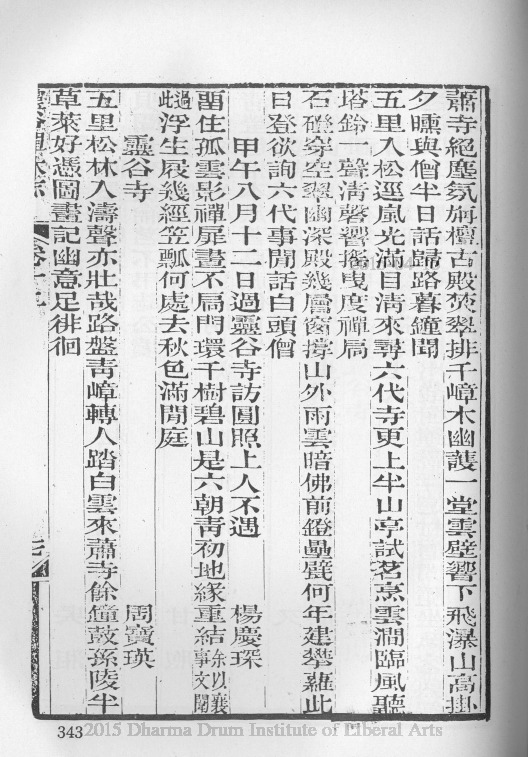 蕭寺絕塵氛旃檀古殿焚翠排千嶂木幽護一堂雲壁響下飛瀑山高掛
夕曛與僧半日話歸路暮鐘聞
五里入松逕嵐光滿目清來尋六代寺更上半山亭試茗烹雲澗臨風聽
塔鈴一聲清磬響搖曳度禪扃
石磴穿空翠幽深殿幾層窗撐山外雨雲暗佛前鐙壘甓何年建攀蘿此
日登欲詢六代事閒話白頭僧
甲午八月十二日過靈谷寺訪圓照上人不遇 楊慶琛
留住孤雲影禪扉晝不扃門環千樹碧山是六朝青初地緣重結余以襄事文闈
過浮生屐幾經笠瓢何處去秋色滿閒庭
靈谷寺 周寶瑛
五里松林入濤聲亦壯哉路盤青嶂轉人踏白雲來蕭寺餘鐘鼓孫陵半
草萊好憑圖畫記幽意足徘徊
343
2015 Dharma Drum Institute of Liberal Arts